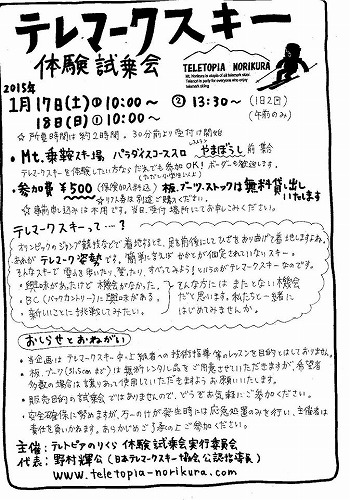 テレマークスキー
体験試乗会
TELETOPIA NORIKURA
2015年
1月17日(土)①10:00〜 ②13:30〜 (1日2回)
18日(日)①10:00〜 (午前のみ)
☆所要時間は約2時間。30分前より受付け開始
・Mt.乗鞍スキー場 パラダイスコース入口 レストランやまぼうし前集合
テレマークスキーを体験したい方ならだれでも参加OK！ボーダーも歓迎します。
(ただし小学生以上)
・参加費¥500(保険加入料込) 板、ブーツ、ストックは無料貸し出しいたします
☆リフト券は別途ご購入ください。
☆事前申し込みは不用です。当日、受付場所にてお申しこみください。
テレマークスキーって…？
オリンピックのジャンプ競技などで着地するとき、足を前後にしてひざをおり曲げて着地しますよね。
あれがテレマーク姿勢です。簡単に言えばかかとが固定されていないスキー。
そんなスキーで雪山を歩いたり、登ったり、すべってみよう！というのがテレマークスキーなのです。
・興味があったけど機会がなかった。
・BC(バックカントリー)に興味がある。
・新しいことに挑戦してみたい。
そんな方にはまたとない機会
だと思います。私たちと一緒に
はじめてみませんか。
おしらせとおねがい
・当企画はテレマークスキー中・上級者への技術指導等のレッスンを目的とはしておりません。
・板、ブーツ(31.5cmまで)は無料レンタル品をご用意させていただきますが、希望者
多数の場合は譲りあって使用していただきますようお願いいたします。
・販売目的の試乗会ではありませんので、どうぞお気軽にご参加ください。
・安全確保に努めますが、万一のけが発生時には応急処置のみを行い、主催者は
責任を負いかねます。あらかじめご了承の上ご参加ください。
主催：テレトピアのりくら 体験試乗会実行委員会
代表：野村輝公(日本テレマークスキー協会公認指導員)
www.teletopia-norikura.com